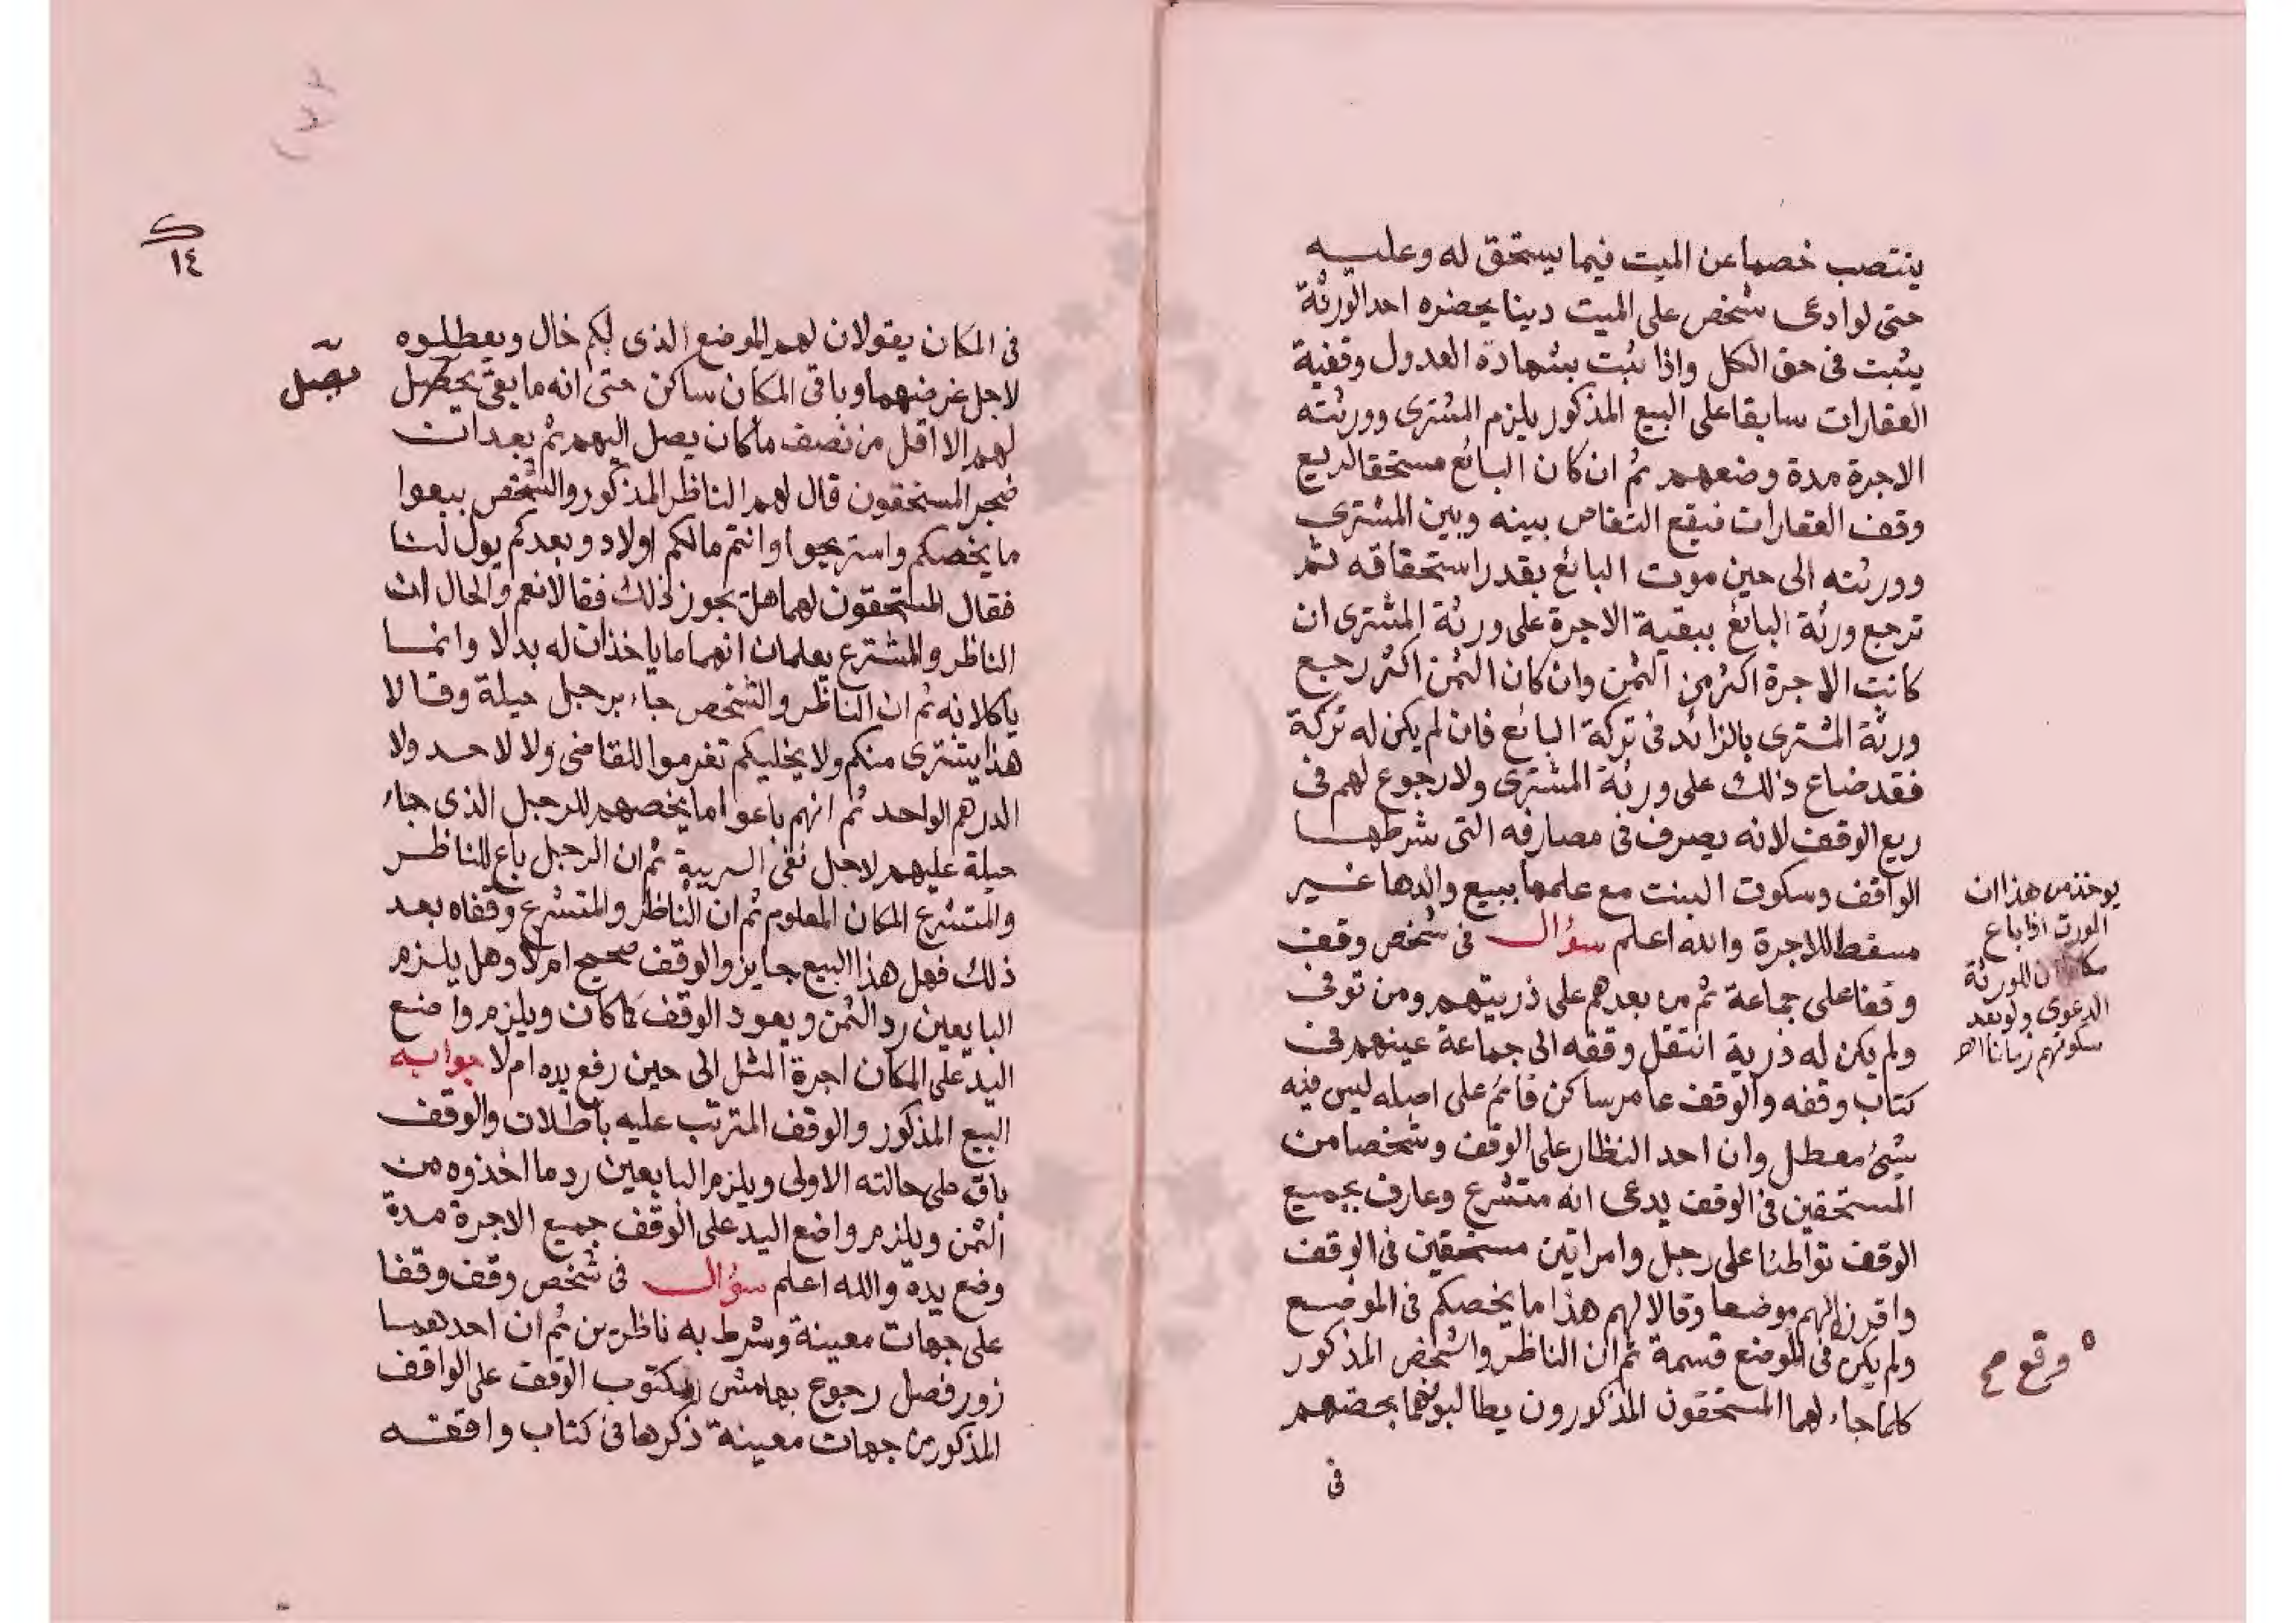 ينتصب خصما عن الميت فيما يستحق له وعليه
حتى لو ادعى شخص على الميت دينا بحضرة احد الورثة
يثبت فى حق الكل واذا ثبت بشهادة العدول وقفية
العقارات سابقا على البيع المذكور يلزم المشترى وورثته
الاجرة مدة وضعهم ثم ان كان البائع مستحقا لريع
وقف العقارات فيقع التقاص بينه وبين المشترى
وورثته الى حين موت البائع بقدر استحقاقه ثم
ترجع ورثة البائع ببقية الاجرة على ورثة المشترى ان
كانت الاجرة اكثر من الثمن وان كان الثمن اكثر رجع
ورثة المشترى بالزائد فى تركة البائع فان لم يكن له تركة
فقد ضاع ذلك على ورثة المشترى ولا رجوع لهم فى
ريع الوقف لانه يصرف فى مصارفه التى شرطها
الواقف وسكوت البنت مع علمها ببيع والدها غير
مسقط للاجرة والله اعلم سؤال فى شخص وقف
وقفا على جماعة ثم من بعدهم على ذريتهم ومن توفى
ولم يكن له ذرية انتقل وقفه الى جماعة عينهم فى
كتاب وقفه والوقف عامر ساكن قائم على اصله ليس فيه
شئ معطل وان احد النظار على الوقف وشخصا من
المستحقين فى الوقف يدعى انه متشرع وعارف بجميع
الوقف تواطئا على رجل وامراتين مستحقين فى الوقف
وافرزا لهم موضعا وقالا لهم هذا ما يخصكم فى الموضع
ولم يكن فى الموضع قسمة ثم ان الناظر والشخص المذكور
كلما جاء لهما المستحقون المذكورون يطالبونهما بحصتهم
فى
يوخذ من هذا ان
المورث اذا باع
ان للورثة
الدعوى ولو بعد
سكوتهم زمانا اه
وقع
١٤
فى المكان يقولان لهم الموضع الذى لكم خال ويعطلوه
لاجل غرضهما وباقى المكان ساكن حتى انه ما بقى يحصل
لهم الا اقل من نصف ما كان يصل اليهم ثم بعد ان
ضجر المستحقون قال لهم الناظر المذكور والشخص بيعوا
ما يخصكم واستريحوا وانتم مالكم اولاد وبعدكم يول لنا
فقال المستحقون لهما هل يجوز ذلك فقالا نعم والحال ان
الناظر والمتشرع يعلمان انهما ما ياخذان له بدلا وانما
ياكلانه ثم ان الناظر والشخص جاء برجل حيلة وقالا
هذا يشترى منكم ولا يخليكم تغرموا للقاضى ولا لاحد ولا
الدرهم الواحد ثم انهم باعوا ما يخصهم للرجل الذى جاء
حيلة عليهم لاجل نفى الريبة ثم ان الرجل باع للناظر
والمتشرع المكان المعلوم ثم ان الناظر والمتشرع وقفاه بعد
ذلك فهل هذا البيع جايز والوقف صحيح ام لا وهل يلزم
البايعين رد الثمن ويعود الوقف كما كان ويلزم واضع
اليد على المكان اجرة المثل الى حين رفع يده ام لا جوابه
البيع المذكور والوقف المترتب عليه باطلان والوقف
باق على حالته الاولى ويلزم البايعين رد ما اخذوه من
الثمن ويلزم واضع اليد على الوقف جميع الاجرة مدة
وضع يده والله اعلم سؤال فى شخص وقف وقفا
على جهات معينة وشرط به ناظرين ثم ان احدهما
زور فصل رجوع بهامش المكتوب الوقف على الواقف
المذكور من جهات معينة ذكرها فى كتاب واقفته
يصل